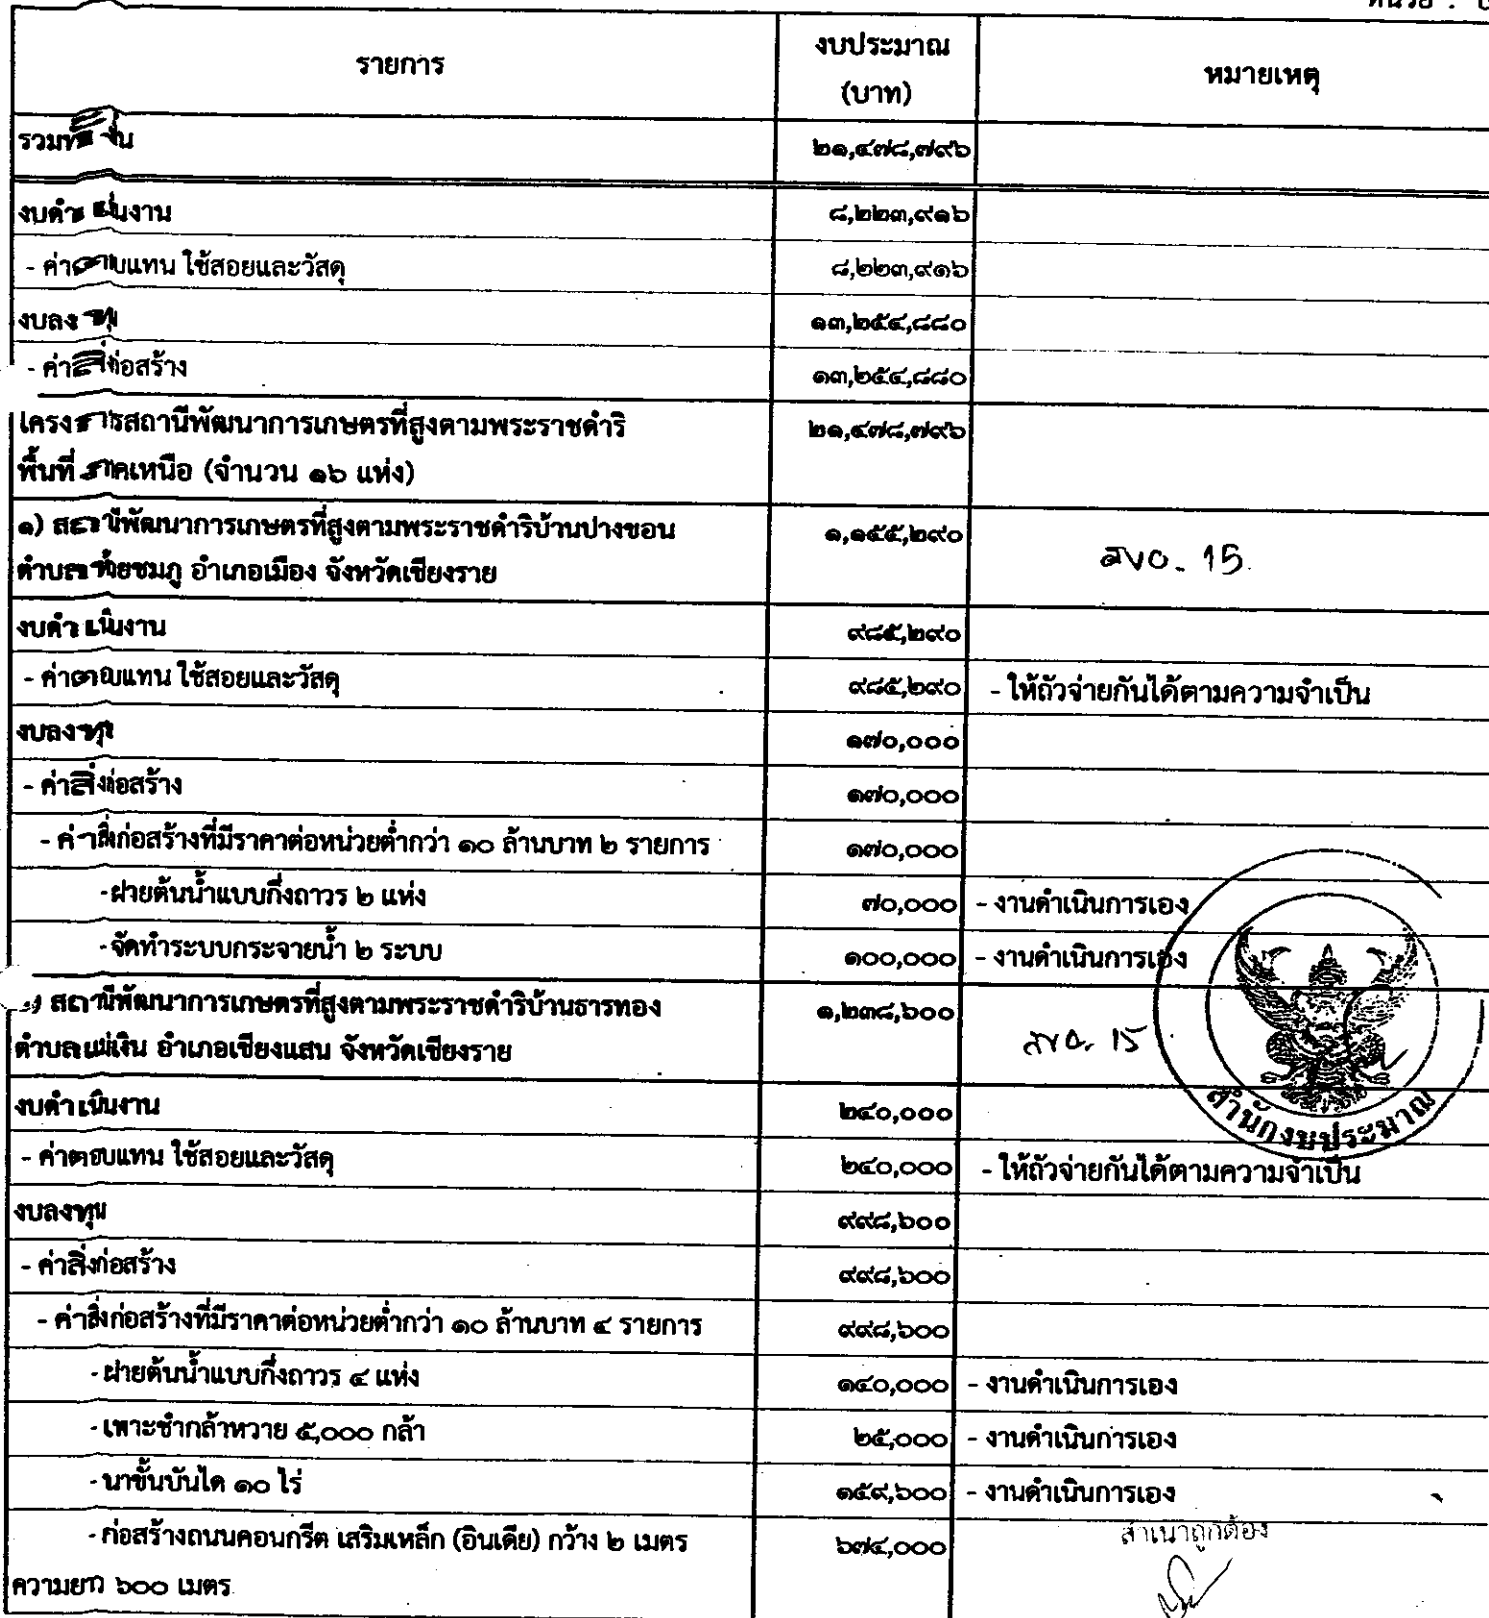 หน่วย :
รายการ
งบประมาณ
(บาท)
หมายเหตุ
รวมทั้งสิ้น ๒๑,๔๗๘,๗๙๖
งบดำเนินงาน ๘,๒๒๓,๙๑๖
- ค่าตอบแทน ใช้สอยและวัสดุ ๘,๒๒๓,๙๑๖
งบลงทุน ๑๓,๒๕๔,๘๘๐
- ค่าสิ่งก่อสร้าง ๑๓,๒๕๔,๘๘๐
โครงการสถานีพัฒนาการเกษตรที่สูงตามพระราชดำริ ๒๑,๔๗๘,๗๙๖
พื้นที่ภาคเหนือ (จำนวน ๑๖ แห่ง)
๑) สถานีพัฒนาการเกษตรที่สูงตามพระราชดำริบ้านปางขอน ๑,๑๕๕,๒๙๐
ตำบลห้วยชมภู อำเภอเมือง จังหวัดเชียงราย สบอ. 15
งบดำเนินงาน ๙๘๕,๒๙๐
- ค่าตอบแทน ใช้สอยและวัสดุ ๙๘๕,๒๙๐ - ให้ถัวจ่ายกันได้ตามความจำเป็น
งบลงทุน ๑๗๐,๐๐๐
- ค่าสิ่งก่อสร้าง ๑๗๐,๐๐๐
- ค่าสิ่งก่อสร้างที่มีราคาต่อหน่วยต่ำกว่า ๑๐ ล้านบาท ๒ รายการ ๑๗๐,๐๐๐
- ฝายต้นน้ำแบบกึ่งถาวร ๒ แห่ง ๗๐,๐๐๐ - งานดำเนินการเอง
- จัดทำระบบกระจายน้ำ ๒ ระบบ ๑๐๐,๐๐๐ - งานดำเนินการเอง
) สถานีพัฒนาการเกษตรที่สูงตามพระราชดำริบ้านธารทอง ๑,๒๓๘,๖๐๐
ตำบลแม่เงิน อำเภอเชียงแสน จังหวัดเชียงราย สบอ. 15
งบดำเนินงาน ๒๔๐,๐๐๐
สำนักงบประมาณ
- ค่าตอบแทน ใช้สอยและวัสดุ ๒๔๐,๐๐๐ - ให้ถัวจ่ายกันได้ตามความจำเป็น
งบลงทุน ๙๙๘,๖๐๐
- ค่าสิ่งก่อสร้าง ๙๙๘,๖๐๐
- ค่าสิ่งก่อสร้างที่มีราคาต่อหน่วยต่ำกว่า ๑๐ ล้านบาท ๔ รายการ ๙๙๘,๖๐๐
- ฝายต้นน้ำแบบกึ่งถาวร ๔ แห่ง ๑๔๐,๐๐๐ - งานดำเนินการเอง
- เพาะชำกล้าหวาย ๕,๐๐๐ กล้า ๒๕,๐๐๐ - งานดำเนินการเอง
- นาขั้นบันได ๑๐ ไร่ ๑๕๙,๖๐๐ - งานดำเนินการเอง
- ก่อสร้างถนนคอนกรีต เสริมเหล็ก (อินเดีย) กว้าง ๒ เมตร ๖๗๔,๐๐๐ สำเนาถูกต้อง
ความยาว ๖๐๐ เมตร